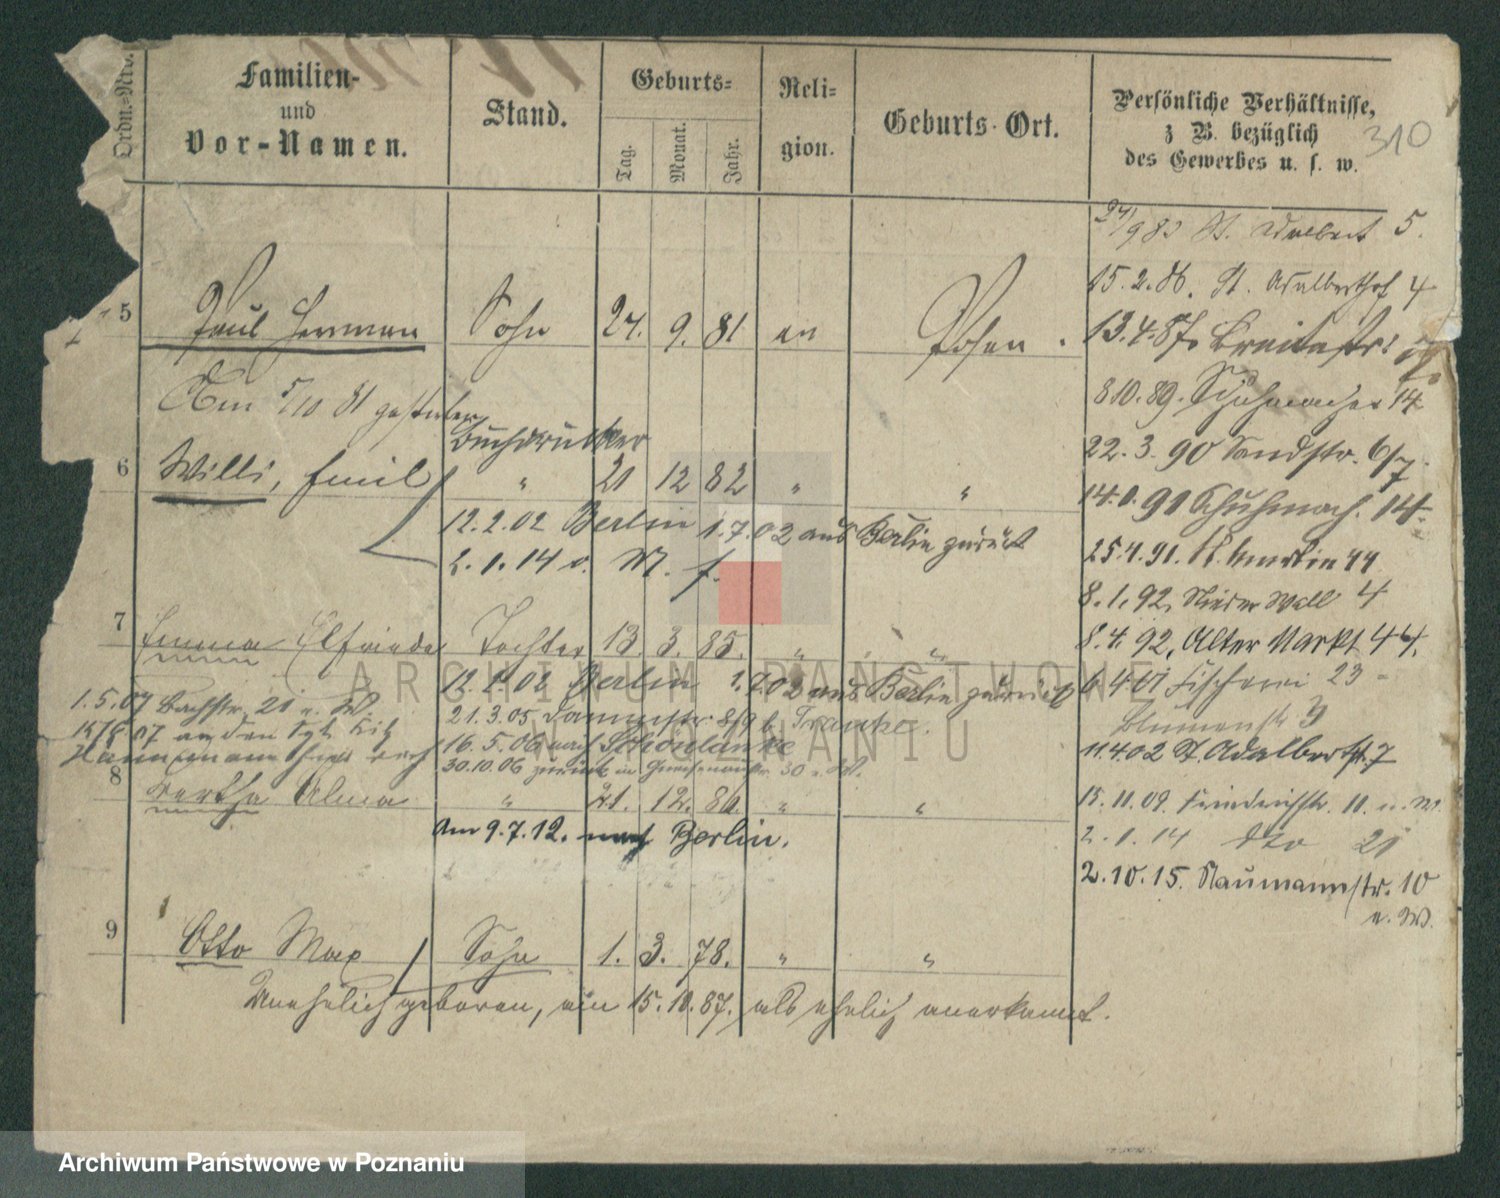 Ordn.-Nro.
Familien-
und
Vor-Namen.
Stand.
Geburts-
Tag.
Monat.
Jahr.
Reli-
gion.
Geburts-Ort.
Persönliche Verhältnisse,
z B. bezüglich
des Gewerbes u. s. w.
310
24/9 83 St. Adalbert 5.
15.2.86. St. Adalberthof 4
5 Paul Herman Sohn 24. 9. 81 ev Posen.
13.4.87. Breitestr.
Am 5/10 81 gestorben
8 10.89. Schuhmacher 14
Buchdrucker
22.3.90 Sandstr. 6/7.
6 Willi, Emil " 21 12 82 " "
91 Schuhmach. 14.
12.2.02 Berlin 1.7.02 aus Berlin zurück
25.4.91. St. Martin 44
2.1.14 v. M. f.
8.1.92, Nieder Wall 4
7 Emma Elfriede Tochter 13. 3. 85. " "
8.4.92, Alter Markt 44.
12.2.02 Berlin 1.7.02 aus Berlin zurück
Fischerei 23
1.5.07 Bachstr. 21 v. W.
21.3.05 8/9 b. Franke.
Blumenstr 3
15/8 07 an den
16.5.06 nach Schönlanke
11.4.02 St. Adalbertstr. 7
30.10.06 zurück 30 v. W.
8 Bertha Alma " 21. 12. 86. " "
15.11.09. Friedrichstr. 11 v. W.
Am 9.7.12. nach Berlin.
2.1.14 dto 21
2.10.15. Naumannstr. 10
v. W.
9 Otto Max Sohn 1. 3. 78. " "
Unehelich geboren, am 15.10.87. als ehelich anerkannt.
ARCHIWUM PAŃSTWOWE
W POZNANIU
Archiwum Państwowe w Poznaniu